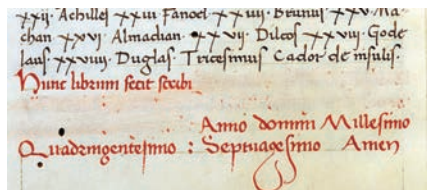 xxij. Achilles xxiii Fanoel xxiiij. Brunus xxv. Ma-
chan xxvi Almadian. xxvij. Dilcos xxviij. Gode
laus. xxviiij. Duglas. Tricesimus Cador de insulis.
Hunc librum fecit scribi
Anno domini Millesimo
Quadringentesimo : Septuagesimo Amen